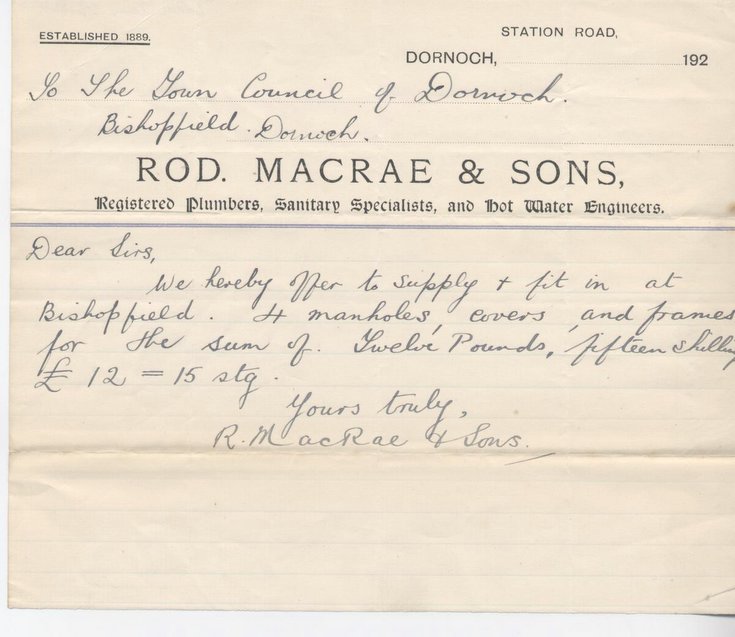 ESTABLISHED 1889.
STATION ROAD,
DORNOCH, 192
To The Town Council of Dornoch.
Bishopfield. Dornoch.
ROD. MACRAE & SONS,
Registered Plumbers, Sanitary Specialists, and Hot Water Engineers.
Dear Sirs,
We hereby offer to supply & fit in at
Bishopfield. 4 manholes, covers, and frames
for the sum of. Twelve Pounds, fifteen shilling
£ 12 = 15 stg.
Yours truly,
R. MacRae & Sons.